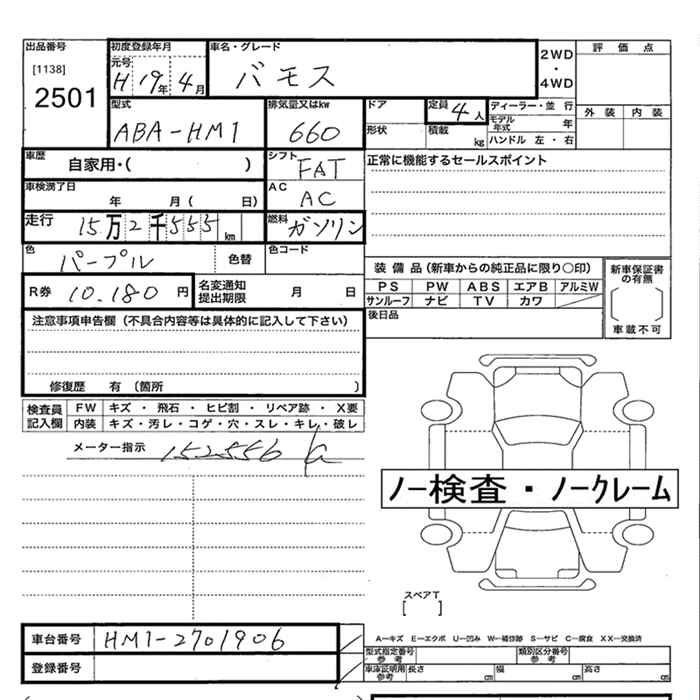 出品番号 初度登録年月 車名・グレード 2WD・4WD 評価点
[1138] 元号 H 19年 4月 バモス
2501 外装 内装
型式 ABA-HM1 排気量又はkw 660 ドア 形状 定員 4人 積載 kg ディーラー・並行 モデル年式 年 ハンドル 左・右
車歴 自家用・( ) シフト FAT 正常に機能するセールスポイント
車検満了日 年 月( 日) AC AC
走行 15万2千555km 燃料 ガソリン
色 パープル 色替 色コード
装備品(新車からの純正品に限り○印) 新車保証書の有無
R券 10.180円 名変通知提出期限 月 日 PS PW ABS エアB アルミW
サンルーフ ナビ TV カワ
注意事項申告欄(不具合内容等は具体的に記入して下さい) 後日品 車載不可
修復歴 有 〔箇所 〕
検査員記入欄 FW キズ・飛石・ヒビ割・リペア跡・X要
内装 キズ・汚レ・コゲ・穴・スレ・キレ・破レ
メーター指示 152556
ノー検査・ノークレーム
スペアT
[ ]
車台番号 HM1-2701906 A-キズ E-エクボ U-凹み W-補修跡 S-サビ C-腐食 XX-交換済
型式指定番号 参考 類別区分番号 参考
登録番号 車庫証明用 参考 長さ cm 幅 cm 高さ cm